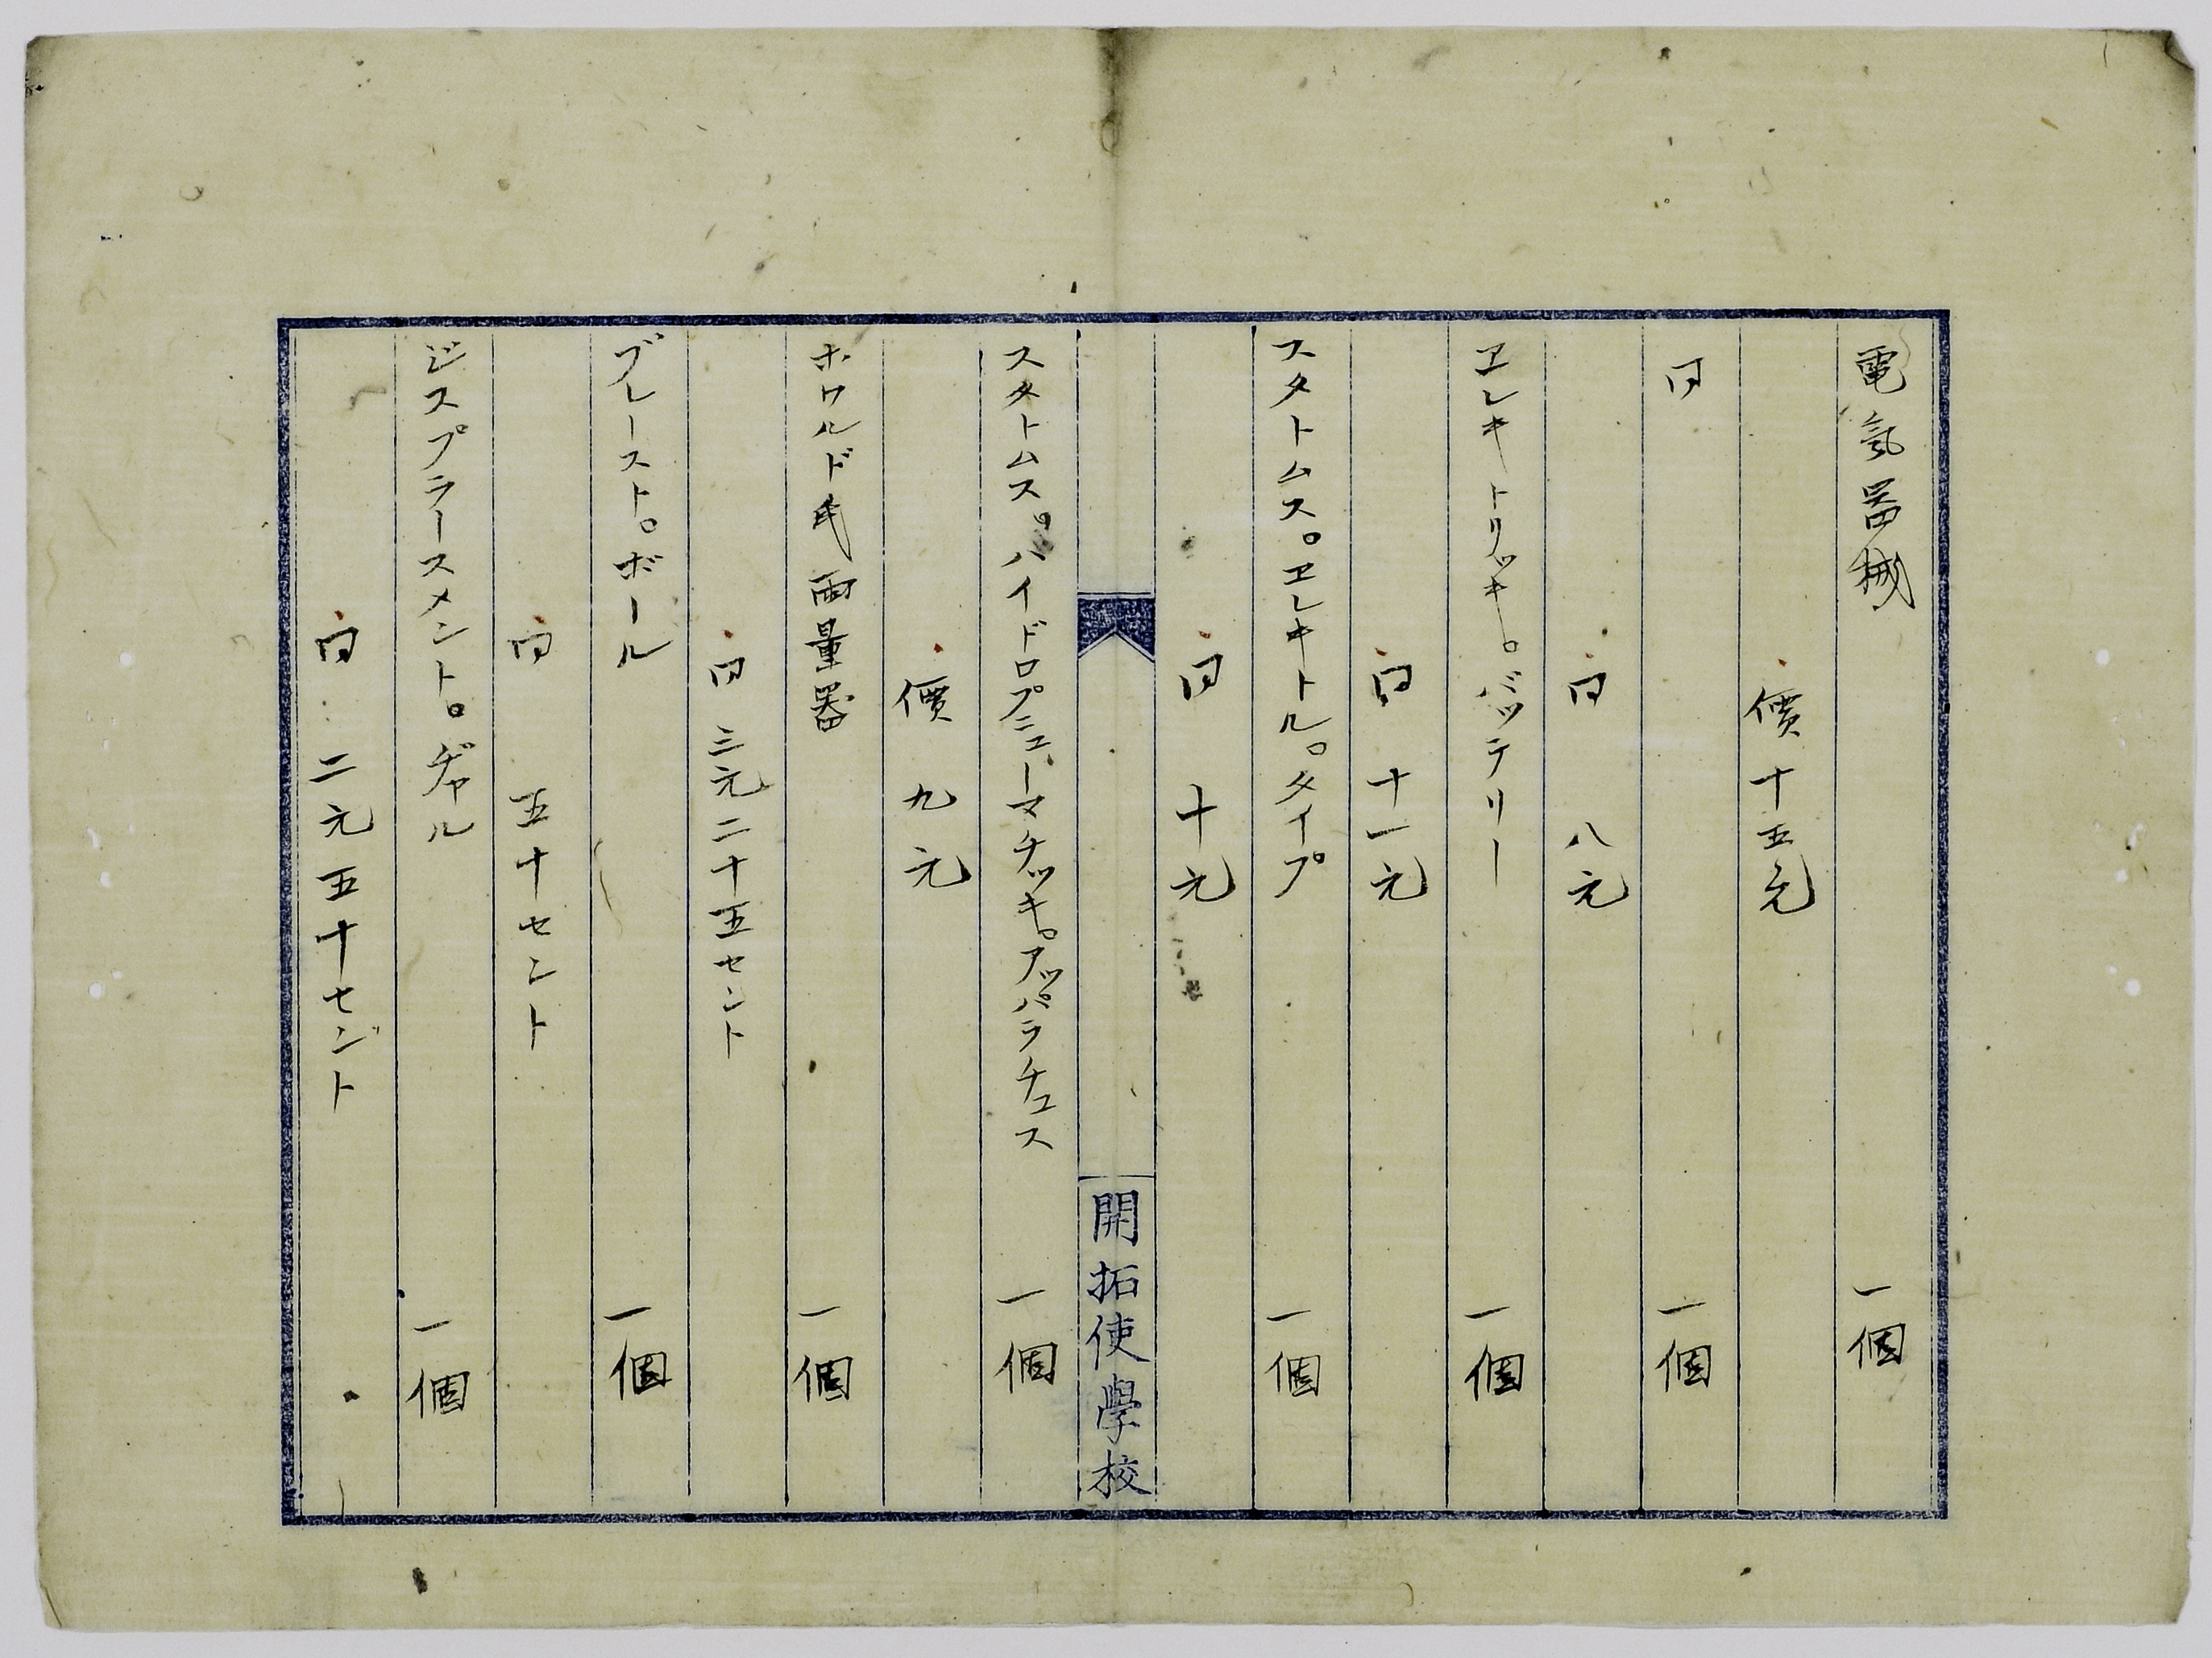 電氣器械 一個
價十五元
同 一個
同 八元
ヱレキトリッキ。バッテリー 一個
同 十一元
スタトムス。ヱレキトル。タイプ 一個
同 十元
開拓使學校
スタトムス。ハイドロプニューマチッキ。アッパラチュス 一個
價 九元
ホワルド氏雨量器 一個
同 三元二十五セント
ブレースト。ボール 一個
同 五十セント
ジスプラースメント。ヂヤル 一個
同 二元五十セント